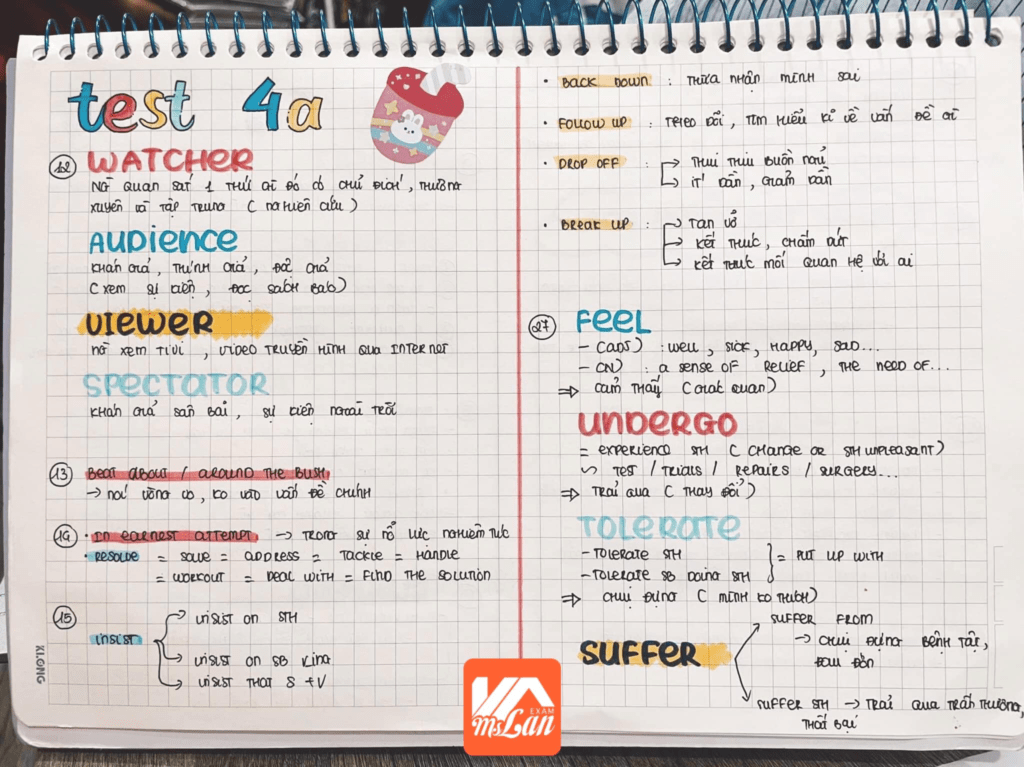 test 4a
12 WATCHER
Ng` quan sát 1 thứ gì đó có chủ đích, thường
xuyên và tập trung ( nghiên cứu )
AUDIENCE
khán giả, thính giả, độc giả
( xem sự kiện, đọc sách báo)
VIEWER
ng` xem tivi, video truyền hình qua internet
SPECTATOR
khán giả sân bãi, sự kiện ngoài trời
13 Beat about / around the bush
→ nói vòng vo, ko vào vấn đề chính
14 • In earnest attempt → trong sự nổ lực nghiêm túc
• Resolve = solve = address = tackle = handle
= workout = deal with = find the solution
15 insist
insist on sth
insist on sb Ving
insist that S + V
• Back down : thừa nhận mình sai
• Follow up : theo dõi, tìm hiểu kĩ về vấn đề gì
• Drop off : → thiu thiu buồn ngủ
→ ít dần, giảm dần
• Break up : → tan vỡ
→ kết thúc, chấm dứt
→ kết thúc mối quan hệ với ai
27 FEEL
- (adj) : well, sick, happy, sad...
- (N) : a sense of relief, the need of...
⇒ cảm thấy ( giác quan)
UNDERGO
= experience sth ( change or sth unpleasant)
↳ test / trials / repairs / surgery...
⇒ trải qua ( thay đổi )
TOLERATE
- tolerate sth
- tolerate sb doing sth } = put up with
⇒ chịu đựng ( mình ko thích)
SUFFER
suffer from
→ chịu đựng bệnh tật,
đau đớn
suffer sth → trải qua
thất bại
XI.GNG
EXAM
MsLan